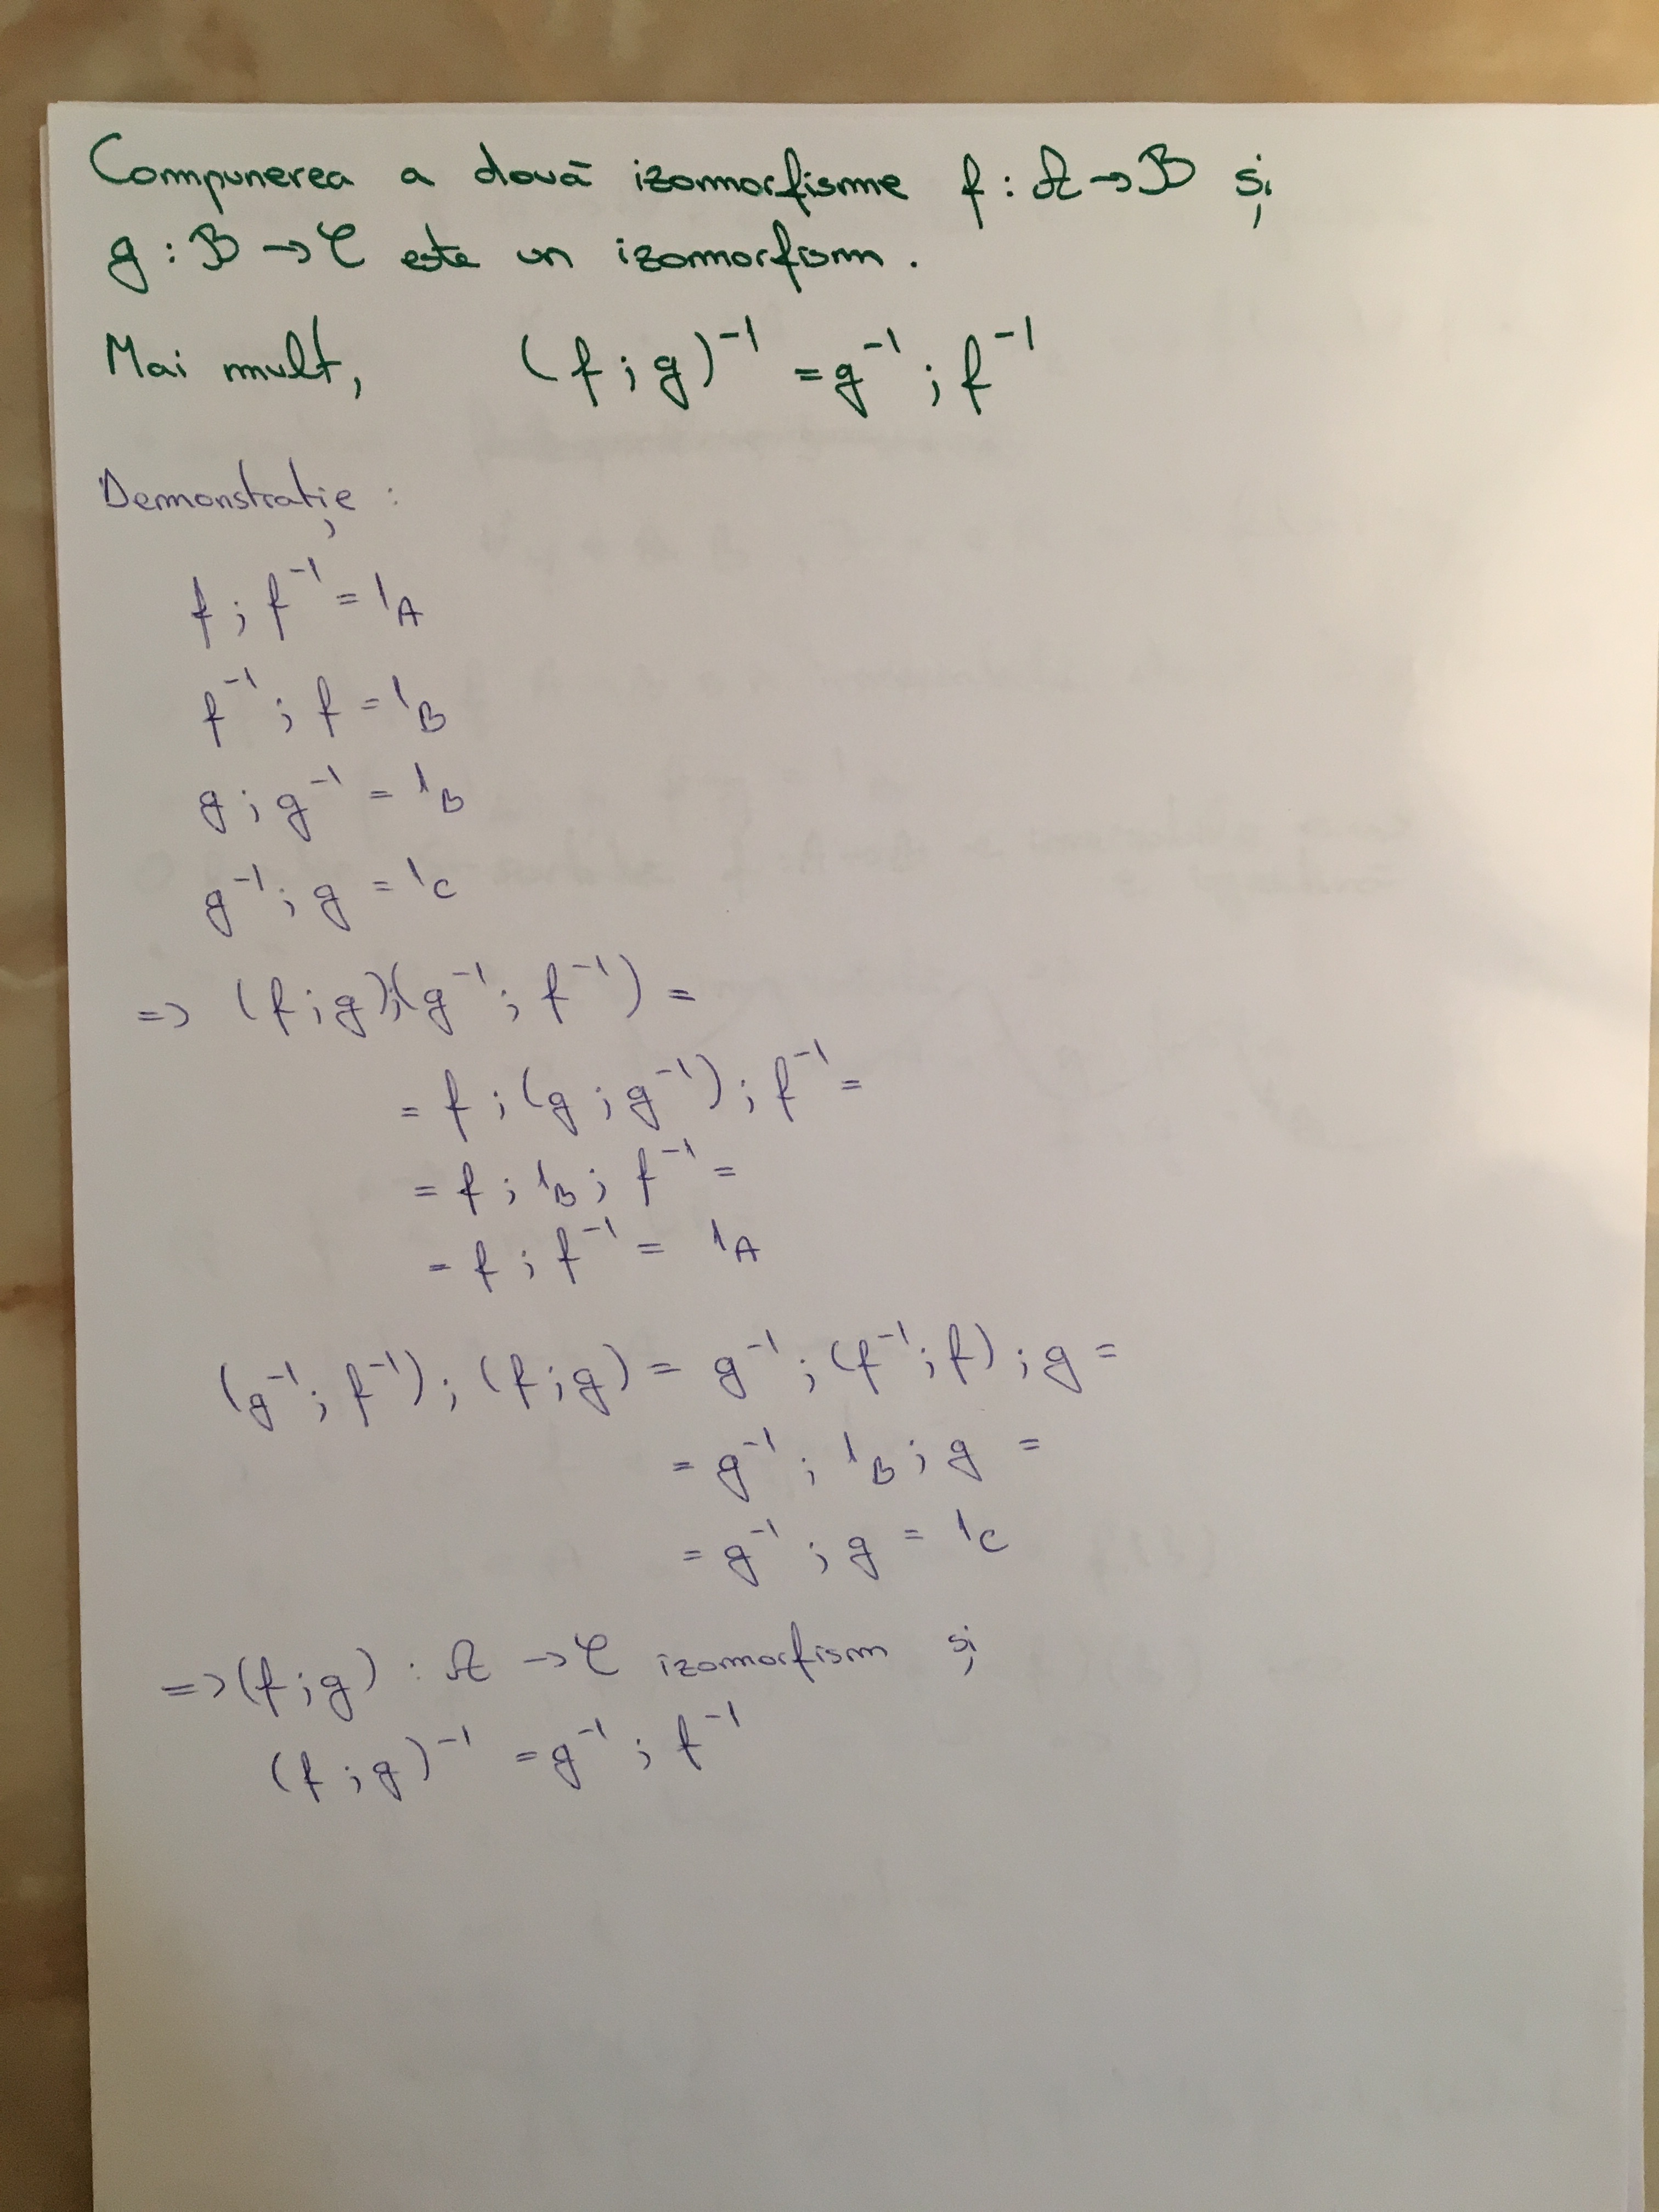 Compunerea a două izomorfisme f : 𝒜 → ℬ și
g : ℬ → 𝒞 este un izomorfism.
Mai mult, (f ; g)⁻¹ = g⁻¹ ; f⁻¹
Demonstrație :
f ; f⁻¹ = 1_A
f⁻¹ ; f = 1_B
g ; g⁻¹ = 1_B
g⁻¹ ; g = 1_C
=> (f ; g) ; (g⁻¹ ; f⁻¹) =
= f ; (g ; g⁻¹) ; f⁻¹ =
= f ; 1_B ; f⁻¹ =
= f ; f⁻¹ = 1_A
(g⁻¹ ; f⁻¹) ; (f ; g) = g⁻¹ ; (f⁻¹ ; f) ; g =
= g⁻¹ ; 1_B ; g =
= g⁻¹ ; g = 1_C
=> (f ; g) : 𝒜 → 𝒞 izomorfism și
(f ; g)⁻¹ = g⁻¹ ; f⁻¹